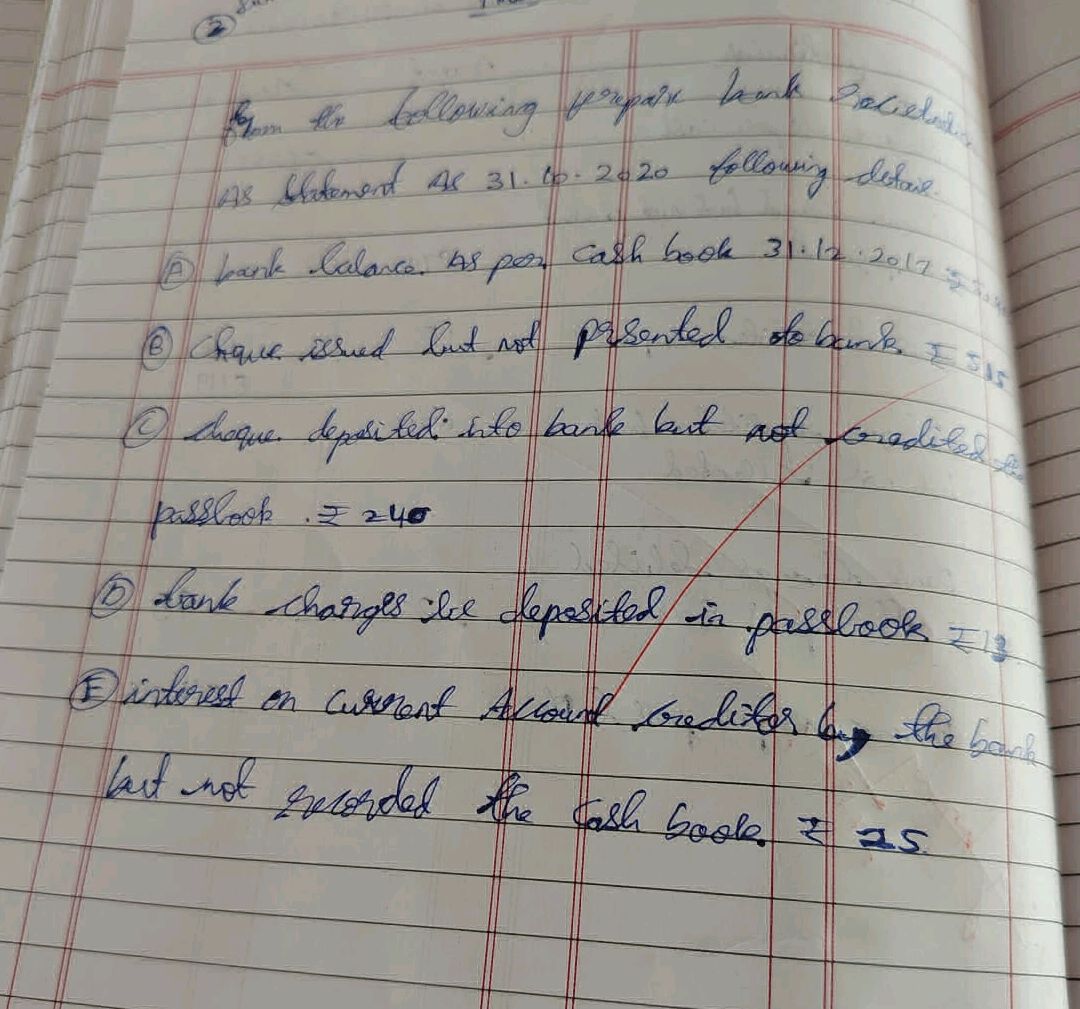 ②
From the following prepair bank
As Statement As 31.10.2020 following detail.
Ⓐ bank balance. As per cash book 31.12.2017 ₹
Ⓑ cheque issued but not presented to bank. ₹ 515
Ⓒ cheque. deposited into bank but not credited the
passbook. ₹ 240
Ⓓ bank charges be deposited in passbook ₹13
Ⓔ interest on current Account creditor by the bank
but not recorded the Cash book. ₹ 25.